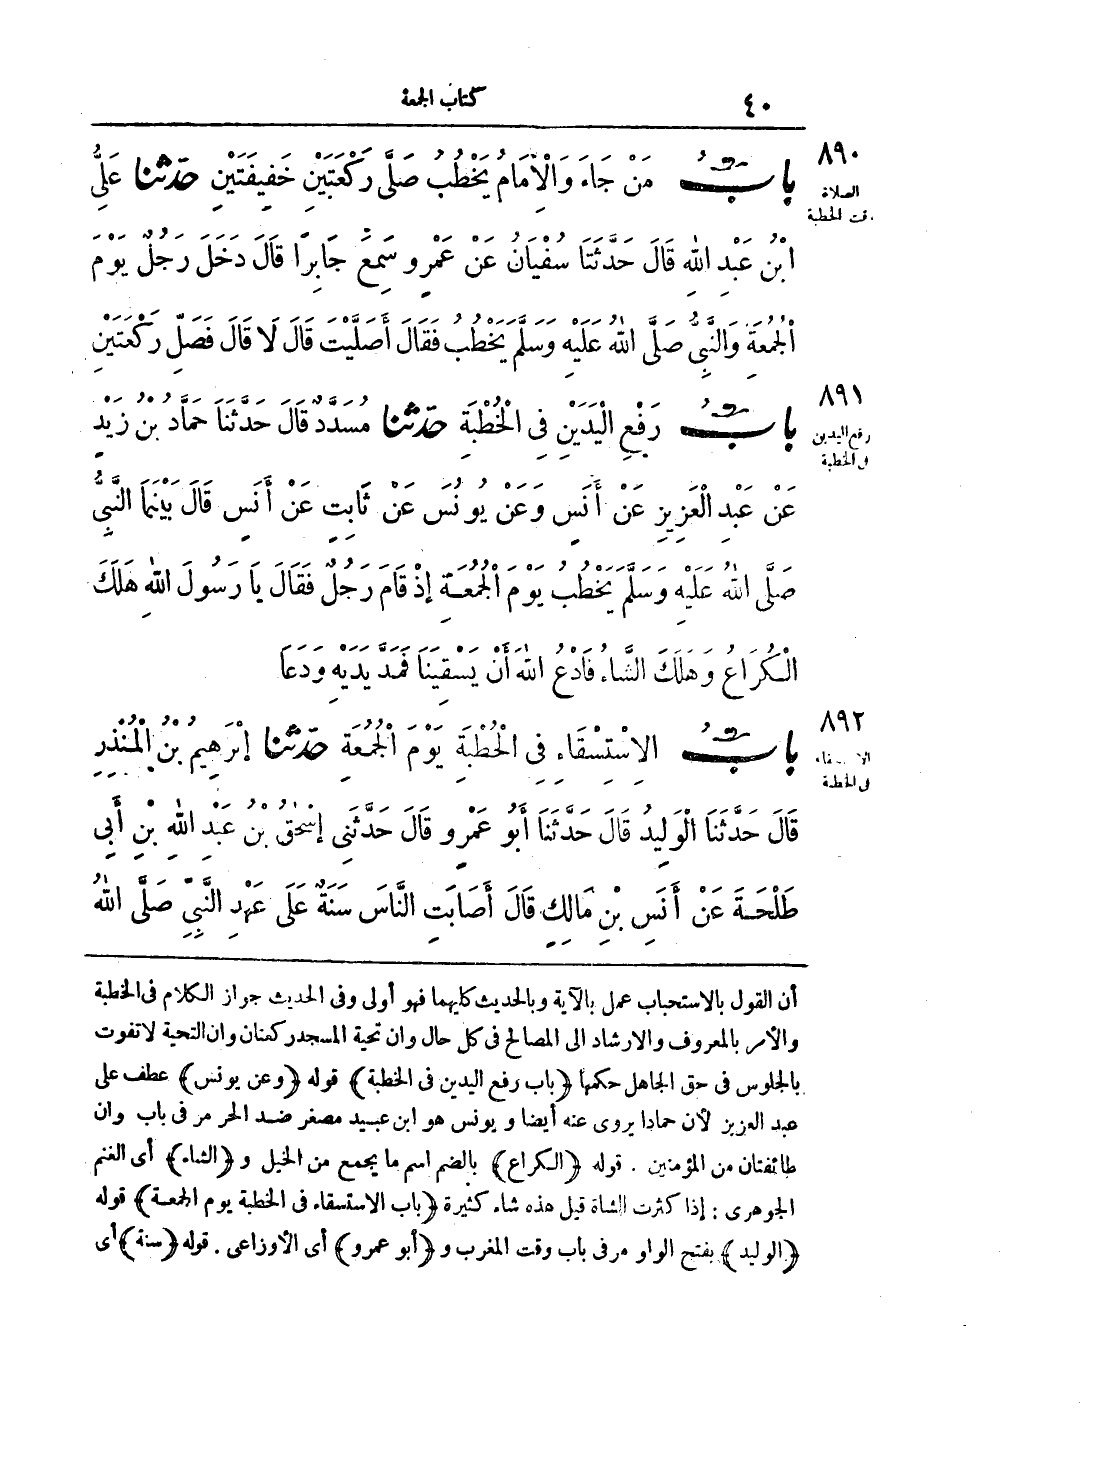 ٤٠ كتاب الجمعة
٨٩٠
الصلاة
وقت الخطبة
بابٌ مَنْ جَاءَ وَالْإِمَامُ يَخْطُبُ صَلَّى رَكْعَتَيْنِ خَفِيفَتَيْنِ حَدَّثَنَا عَلِيُّ
ابْنُ عَبْدِ اللهِ قَالَ حَدَّثَنَا سُفْيَانُ عَنْ عَمْرٍو سَمِعَ جَابِرًا قَالَ دَخَلَ رَجُلٌ يَوْمَ
الْجُمُعَةِ وَالنَّبِيُّ صَلَّى اللهُ عَلَيْهِ وَسَلَّمَ يَخْطُبُ فَقَالَ أَصَلَّيْتَ قَالَ لَا قَالَ فَصَلِّ رَكْعَتَيْنِ
٨٩١
رفع اليدين
فى الخطبة
بابٌ رَفْعِ الْيَدَيْنِ فِى الْخُطْبَةِ حَدَّثَنَا مُسَدَّدٌ قَالَ حَدَّثَنَا حَمَّادُ بْنُ زَيْدٍ
عَنْ عَبْدِ الْعَزِيزِ عَنْ أَنَسٍ وَعَنْ يُونُسَ عَنْ ثَابِتٍ عَنْ أَنَسٍ قَالَ بَيْنَمَا النَّبِيُّ
صَلَّى اللهُ عَلَيْهِ وَسَلَّمَ يَخْطُبُ يَوْمَ الْجُمُعَةِ إِذْ قَامَ رَجُلٌ فَقَالَ يَا رَسُولَ اللهِ هَلَكَ
الْكُرَاعُ وَهَلَكَ الشَّاءُ فَادْعُ اللهَ أَنْ يَسْقِيَنَا فَمَدَّ يَدَيْهِ وَدَعَا
٨٩٢
الاستسقاء
فى الخطبة
بابٌ الِاسْتِسْقَاءِ فِى الْخُطْبَةِ يَوْمَ الْجُمُعَةِ حَدَّثَنَا إِبْرَهِيمُ بْنُ الْمُنْذِرِ
قَالَ حَدَّثَنَا الْوَلِيدُ قَالَ حَدَّثَنَا أَبُو عَمْرٍو قَالَ حَدَّثَنِى إِسْحَقُ بْنُ عَبْدِ اللهِ بْنِ أَبِى
طَلْحَةَ عَنْ أَنَسِ بْنِ مَالِكٍ قَالَ أَصَابَتِ النَّاسَ سَنَةٌ عَلَى عَهْدِ النَّبِيِّ صَلَّى اللهُ
أن القول بالاستحباب عمل بالآية وبالحديث كليهما فهو أولى وفى الحديث جواز الكلام فى الخطبة
والأمر بالمعروف والارشاد الى المصالح فى كل حال وان تحية المسجد ركعتان وان التحية لا تفوت
بالجلوس فى حق الجاهل حكمها ﴿باب رفع اليدين فى الخطبة﴾ قوله ﴿وعن يونس﴾ عطف على
عبد العزيز لأن حمادا يروى عنه أيضا و يونس هو ابن عبيد مصغر ضد الحر مر فى باب وان
طائفتان من المؤمنين . قوله ﴿الكراع﴾ بالضم اسم ما يجمع من الخيل و ﴿الشاء﴾ أى الغنم
الجوهرى : إذا كثرت الشاة قيل هذه شاء كثيرة ﴿باب الاستسقاء فى الخطبة يوم الجمعة﴾ قوله
﴿الوليد﴾ بفتح الواو مر فى باب وقت المغرب و ﴿أبو عمرو﴾ أى الأوزاعى . قوله ﴿سنة﴾ أى